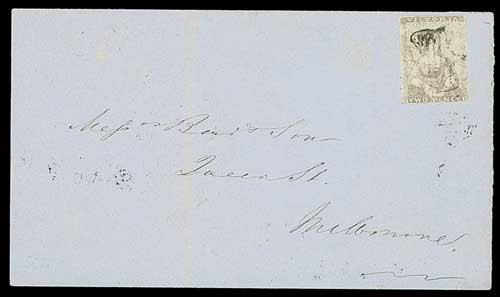 VICTORIA
TWO PENCE
Messrs Bear & Son
Queen St.
Melbourne.